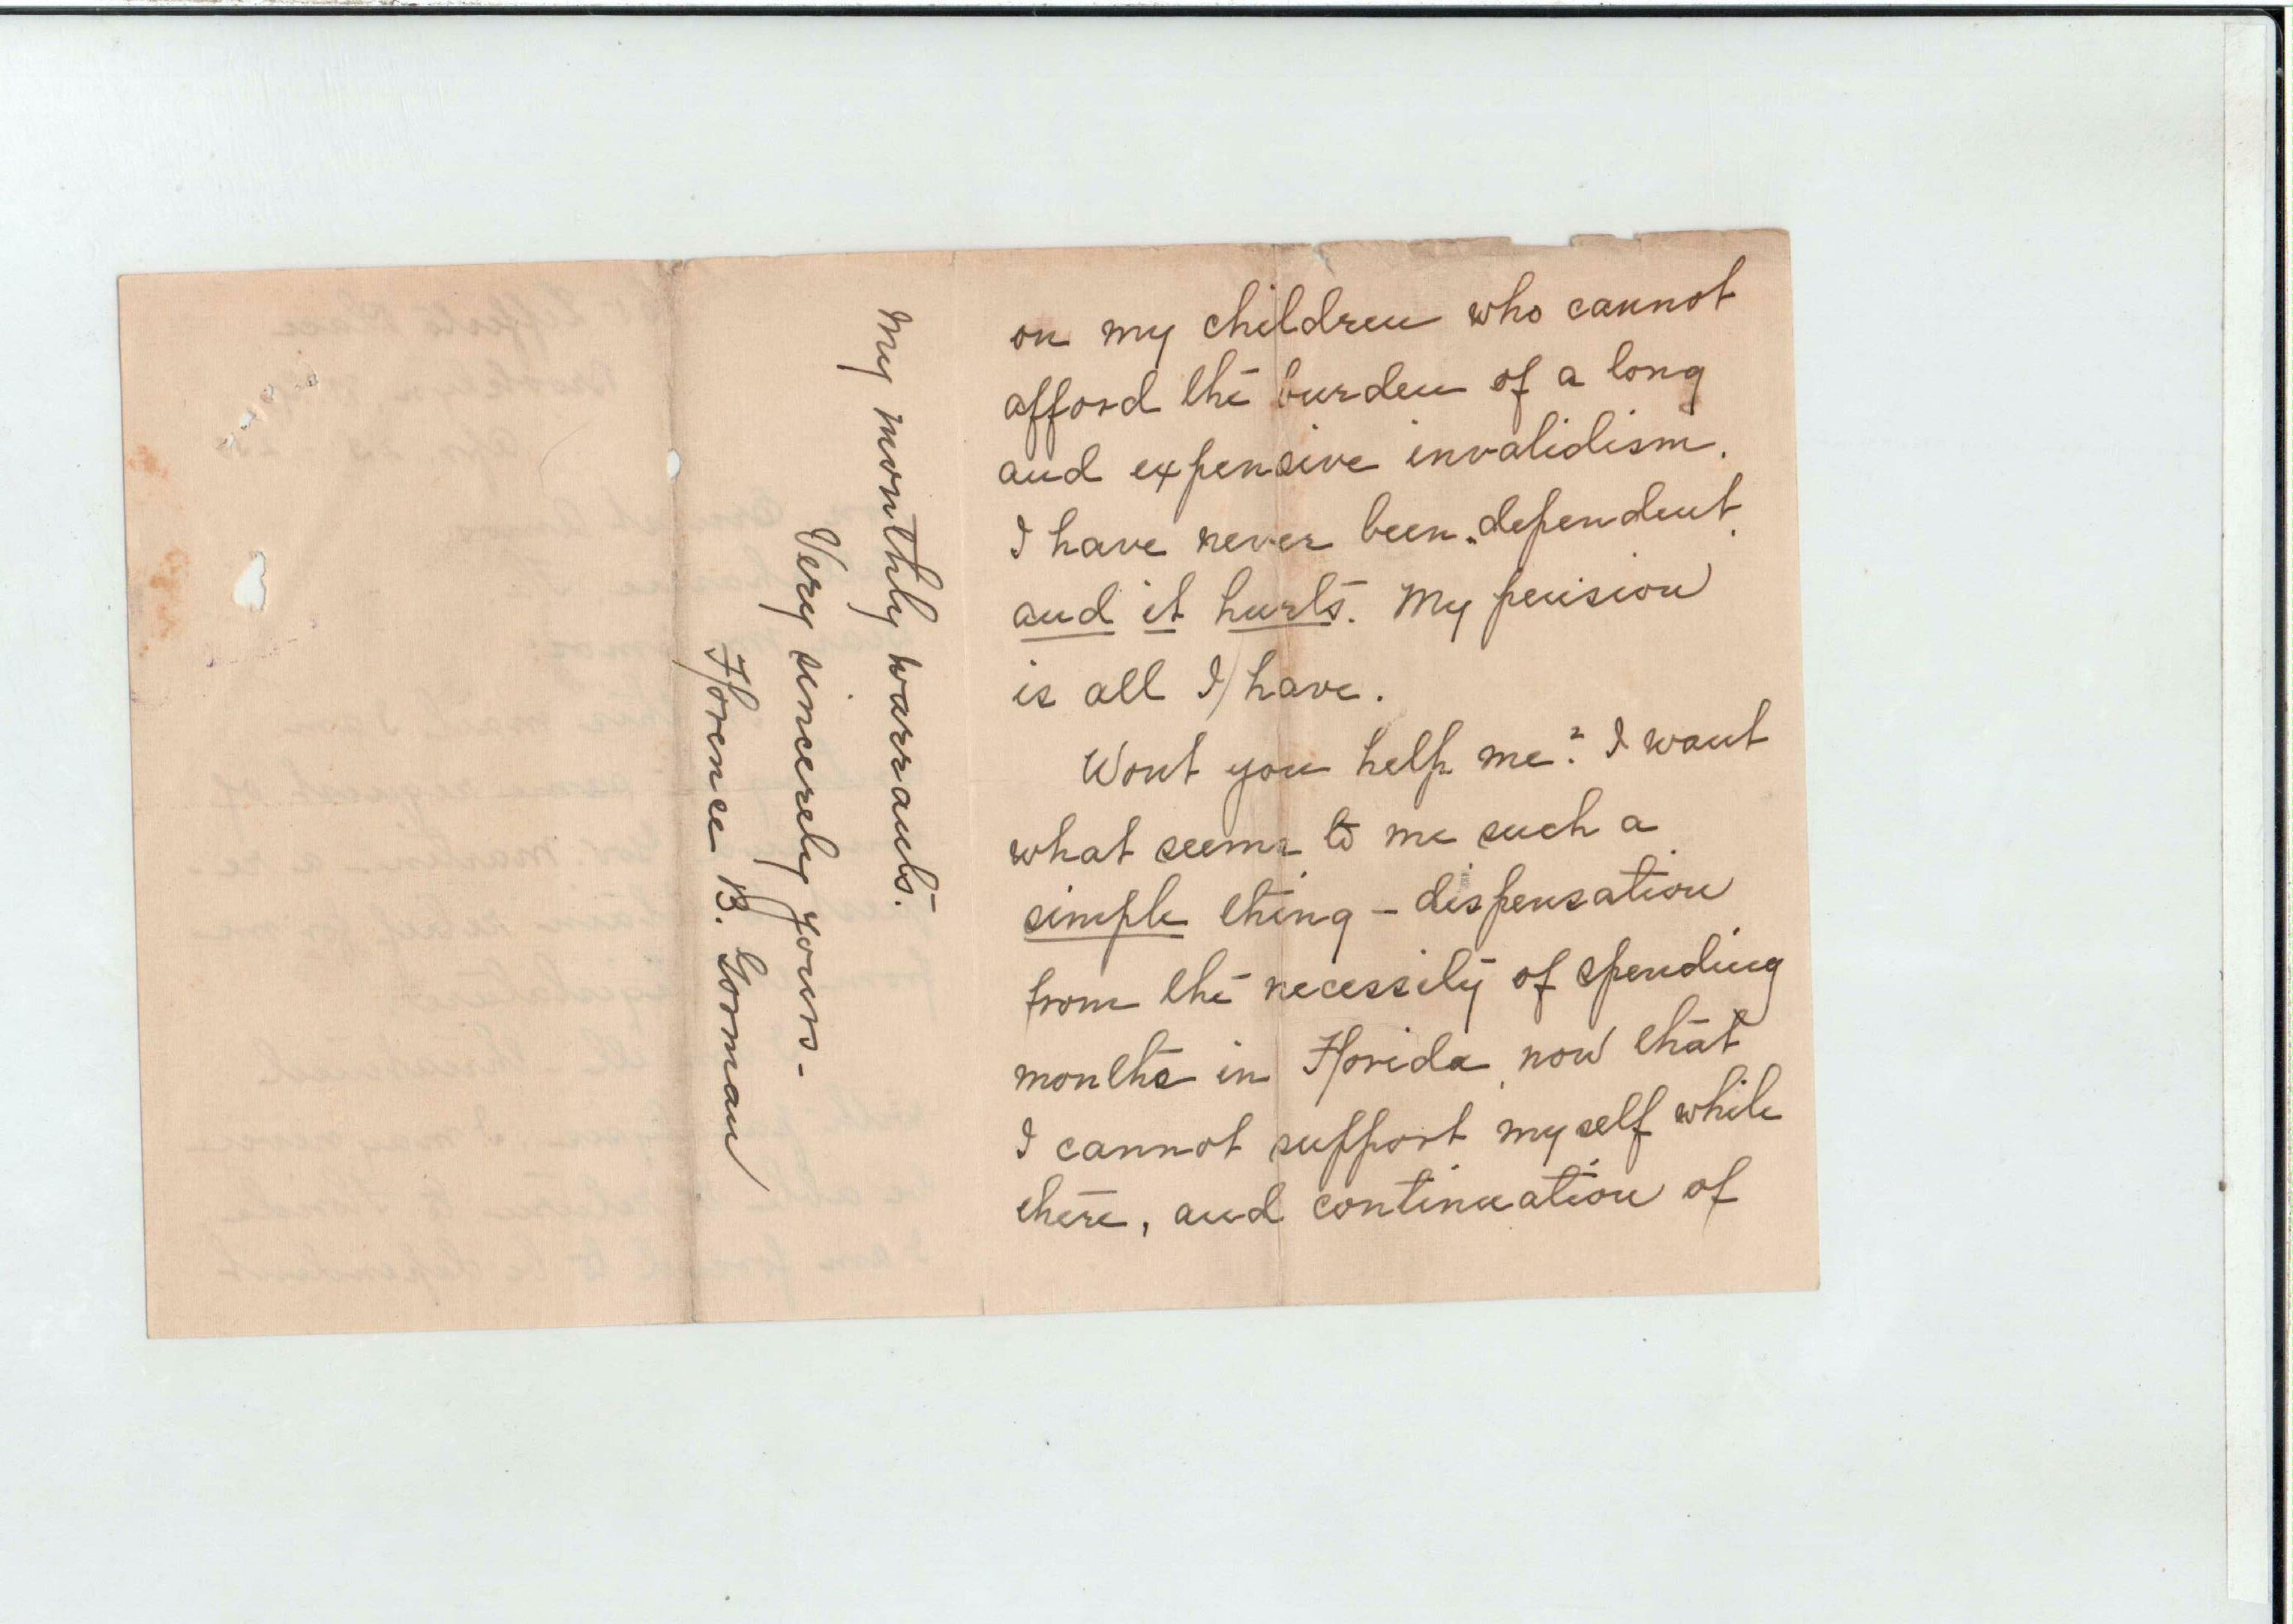 on my children who cannot
afford the burden of a long
and expensive invalidism.
I have never been dependent
and it hurts. My pension
is all I have.
Wont you help me? I want
what seems to me such a
simple thing - dispensation
from the necessity of spending
months in Florida now that
I cannot support myself while
there, and continuation of
my monthly warrants.
Very sincerely yours -
Florence B. Gorman